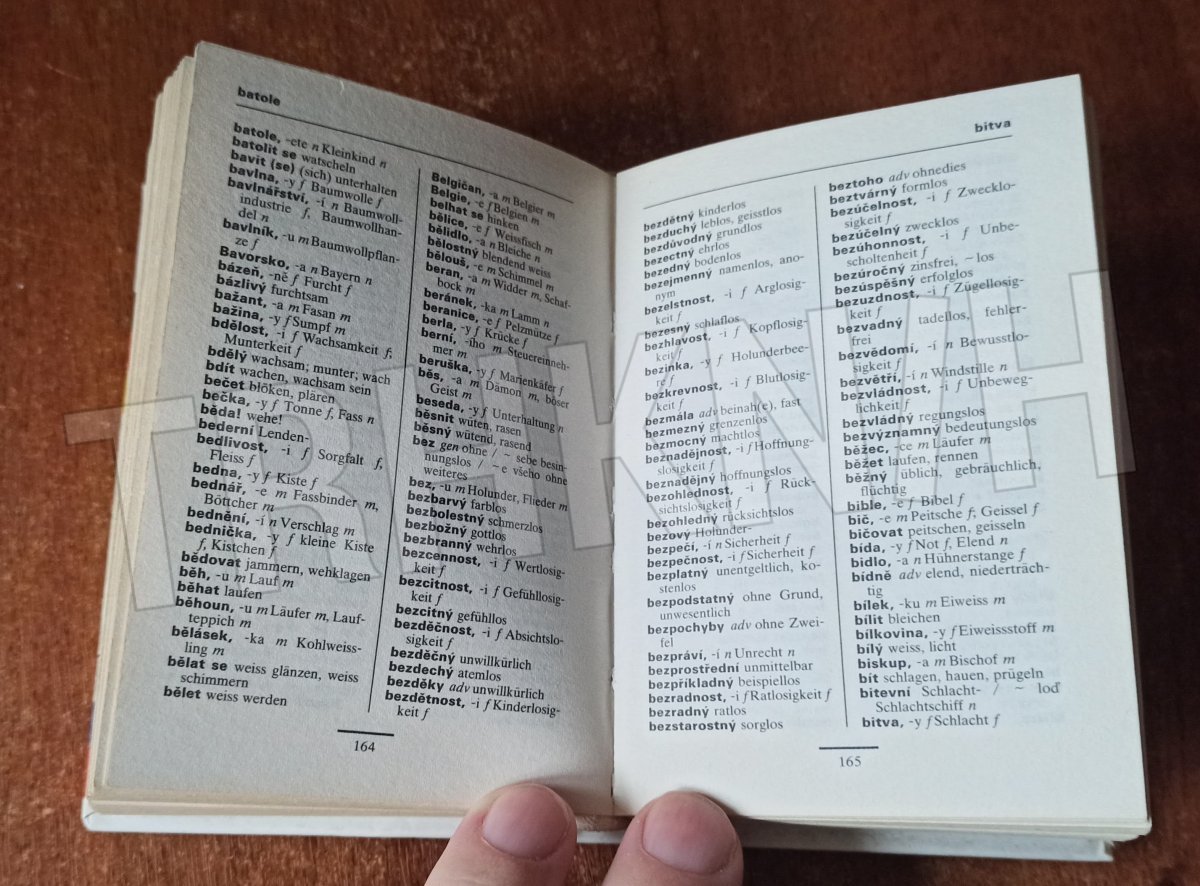 batole
batole, -ete n Kleinkind n
batolit se watscheln
bavit (se) (sich) unterhalten
bavlna, -y f Baumwolle f
bavlnářství, -í n Baumwoll-
industrie f, Baumwollhan-
del n
bavlník, -u m Baumwollpflan-
ze f
Bavorsko, -a n Bayern n
bázeň, -ně f Furcht f
bázlivý furchtsam
bažant, -a m Fasan m
bažina, -y f Sumpf m
bdělost, -i f Wachsamkeit f,
Munterkeit f
bdělý wachsam; munter; wach
bdít wachen, wachsam sein
bečet blöken, plären
bečka, -y f Tonne f, Fass n
běda! wehe!
bederní Lenden-
bedlivost, -i f Sorgfalt f,
Fleiss f
bedna, -y f Kiste f
bednář, -e m Fassbinder m,
Böttcher m
bednění, -í n Verschlag m
bednička, -y f kleine Kiste
f, Kistchen f
bědovat jammern, wehklagen
běh, -u m Lauf m
běhat laufen
běhoun, -u m Läufer m, Lauf-
teppich m
bělásek, -ka m Kohlweiss-
ling m
bělat se weiss glänzen, weiss
schimmern
bělet weiss werden
Belgičan, -a m Belgier m
Belgie, -e f Belgien m
belhat se hinken
bělice, -e f Weissfisch m
bělidlo, -a n Bleiche n
bělostný blendend weiss
bělouš, -e m Schimmel m
beran, -a m Widder m, Schaf-
bock m
beránek, -ka m Lamm n
beranice, -e f Pelzmütze f
berla, -y f Krücke f
berní, -ího m Steuereinneh-
mer m
beruška, -y f Marienkäfer f
běs, -a m Dämon m, böser
Geist m
beseda, -y f Unterhaltung n
běsnit wüten, rasen
běsný wütend, rasend
bez gen ohne / ~ sebe besin-
nungslos / ~ e všeho ohne
weiteres
bez, -u m Holunder, Flieder m
bezbarvý farblos
bezbolestný schmerzlos
bezbožný gottlos
bezbranný wehrlos
bezcennost, -i f Wertlosig-
keit f
bezcitnost, -i f Gefühllosig-
keit f
bezcitný gefühllos
bezděčnost, -i f Absichtslo-
sigkeit f
bezděčný unwillkürlich
bezdechý atemlos
bezděky adv unwillkürlich
bezdětnost, -i f Kinderlosig-
keit f
164
bitva
bezdětný kinderlos
bezduchý leblos, geistlos
bezdůvodný grundlos
bezectný ehrlos
bezedný bodenlos
bezejmenný namenlos, ano-
nym
bezelstnost, -i f Arglosig-
keit f
bezesný schlaflos
bezhlavost, -i f Kopflosig-
keit f
bezinka, -y f Holunderbee-
re f
bezkrevnost, -i f Blutlosig-
keit f
bezmála adv beinah(e), fast
bezmezný grenzenlos
bezmocný machtlos
beznadějnost, -i f Hoffnung-
slosigkeit f
beznadějný hoffnungslos
bezohlednost, -i f Rück-
sichtslosigkeit f
bezohledný rücksichtslos
bezový Holunder-
bezpečí, -í n Sicherheit f
bezpečnost, -i f Sicherheit f
bezplatný unentgeltlich, ko-
stenlos
bezpodstatný ohne Grund,
unwesentlich
bezpochyby adv ohne Zwei-
fel
bezpráví, -í n Unrecht n
bezprostřední unmittelbar
bezpříkladný beispiellos
bezradnost, -i f Ratlosigkeit f
bezradný ratlos
bezstarostný sorglos
beztoho adv ohnedies
beztvárný formlos
bezúčelnost, -i f Zwecklo-
sigkeit f
bezúčelný zwecklos
bezúhonnost, -i f Unbe-
scholtenheit f
bezúročný zinsfrei, ~ los
bezúspěšný erfolglos
bezuzdnost, -i f Zügellosig-
keit f
bezvadný tadellos, fehler-
frei
bezvědomí, -í n Bewusstlo-
sigkeit f
bezvětří, -í n Windstille n
bezvládnost, -i f Unbeweg-
lichkeit f
bezvládný regungslos
bezvýznamný bedeutungslos
běžec, -ce m Läufer m
běžet laufen, rennen
běžný üblich, gebräuchlich,
flüchtig
bible, -e f Bibel f
bič, -e m Peitsche f; Geissel f
bičovat peitschen, geisseln
bída, -y f Not f, Elend n
bidlo, -a n Hühnerstange f
bídně adv elend, niederträch-
tig
bílek, -ku m Eiweiss m
bílit bleichen
bílkovina, -y f Eiweissstoff m
bílý weiss, licht
biskup, -a m Bischof m
bít schlagen, hauen, prügeln
bitevní Schlacht- / ~ loď
Schlachtschiff n
bitva, -y f Schlacht f
165